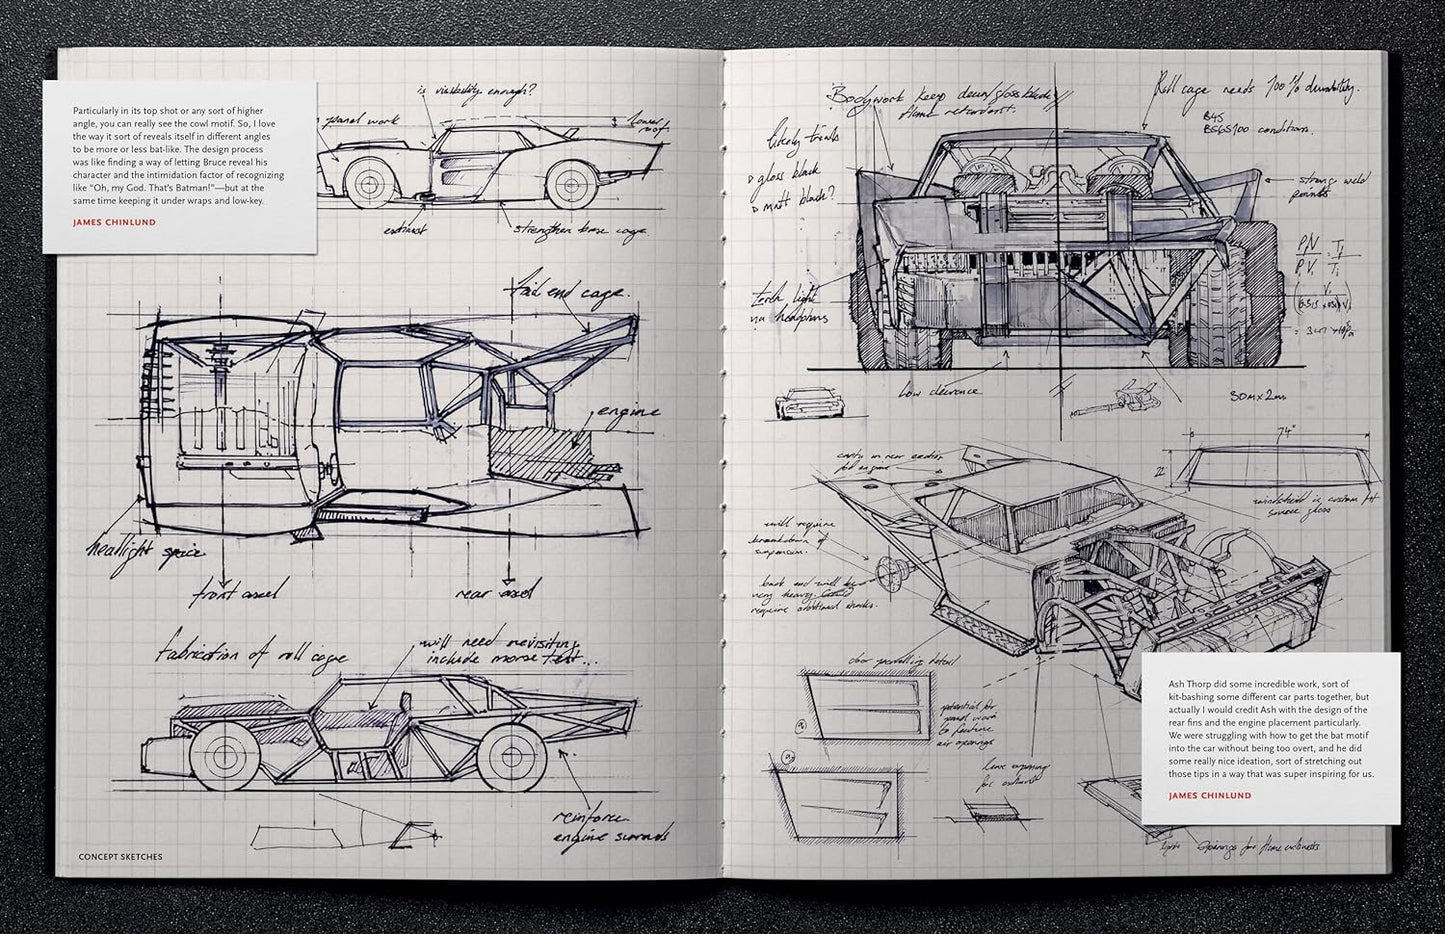 Particularly in its top shot or any sort of higher
angle, you can really see the cowl motif. So, I love
the way it sort of reveals itself in different angles
to be more or less bat-like. The design process
was like finding a way of letting Bruce reveal his
character and the intimidation factor of recognizing
like “Oh, my God. That’s Batman!”—but at the
same time keeping it under wraps and low-key.
JAMES CHINLUND
is visibility enough?
panel work
lower
roof.
exhaust
strengthen base cage.
tail end cage.
engine
headlight space
front axel
rear axel
fabrication of roll cage
will need revisiting
include morse test...
reinforce
engine surrounds
CONCEPT SKETCHES
Bodywork keep down/gloss black
flame retardant.
Roll cage needs 100% durability.
B45
BS6S100 condition.
likely trials
gloss black
matt black?
strong weld
points
torch light
via headlights
Low clearance
30m x 2mm
cavity in rear section
for engine
74"
22"
windshield is custom fit
source glass
will require
breakdown of
suspension.
back end will be
very heavy. Could
require additional shocks.
door panelling detail
potential for
panel work
to feature
air openings
leave opening
for exhaust
Ash Thorp did some incredible work, sort of
kit-bashing some different car parts together, but
actually I would credit Ash with the design of the
rear fins and the engine placement particularly.
We were struggling with how to get the bat motif
into the car without being too overt, and he did
some really nice ideation, sort of stretching out
those tips in a way that was super inspiring for us.
JAMES CHINLUND
openings for flame exhausts